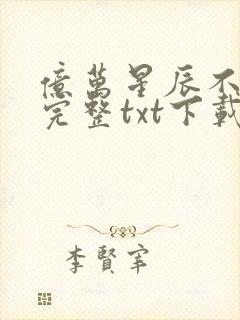 億萬星辰不
完整txt下載
李賢宰